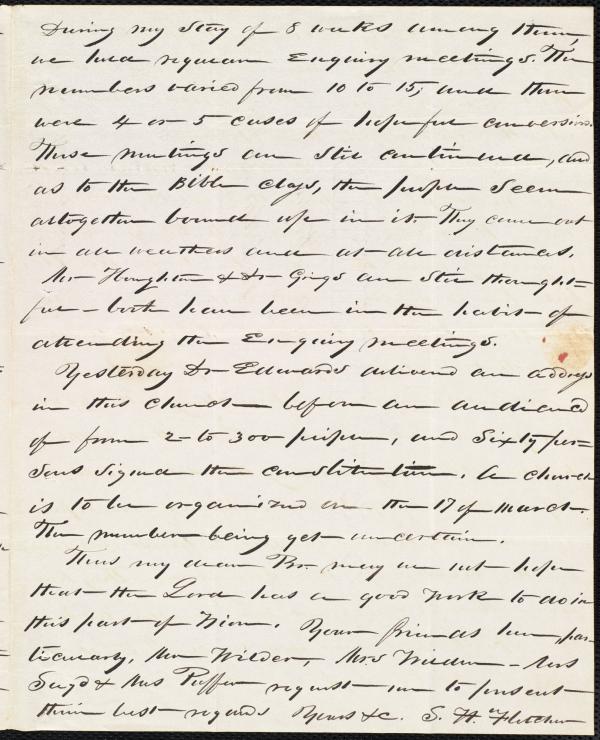 During my stay of 8 weeks among them,
we had regular Enquiry meetings. The
numbers varied from 10 to 15, and there
were 4 or 5 cases of hopeful conversion.
These meetings are still continued, and
as to the Bible class, the people seem
altogether bound up in it. They come out
in all weathers and at all distances.
Mr Houghton & Dr are still thought=
ful - both have been in the habit of
attending the Enquiry meetings.
Yesterday Dr Edwards delivered an address
in this church before an audience
of from 2 to 300 people, and Sixty per=
sons signed the constitution. A church
is to be organized on the 17 of March.
The number being yet uncertain.
Thus my dear Br. may we not hope
that the Lord has a good work to do in
this part of Zion. Your friends here, par=
ticularly, Mr Wilder, Mrs Wilder - Mrs
& Mrs Puffer request me to present
their best regards Yours &c. S. H. Fletcher